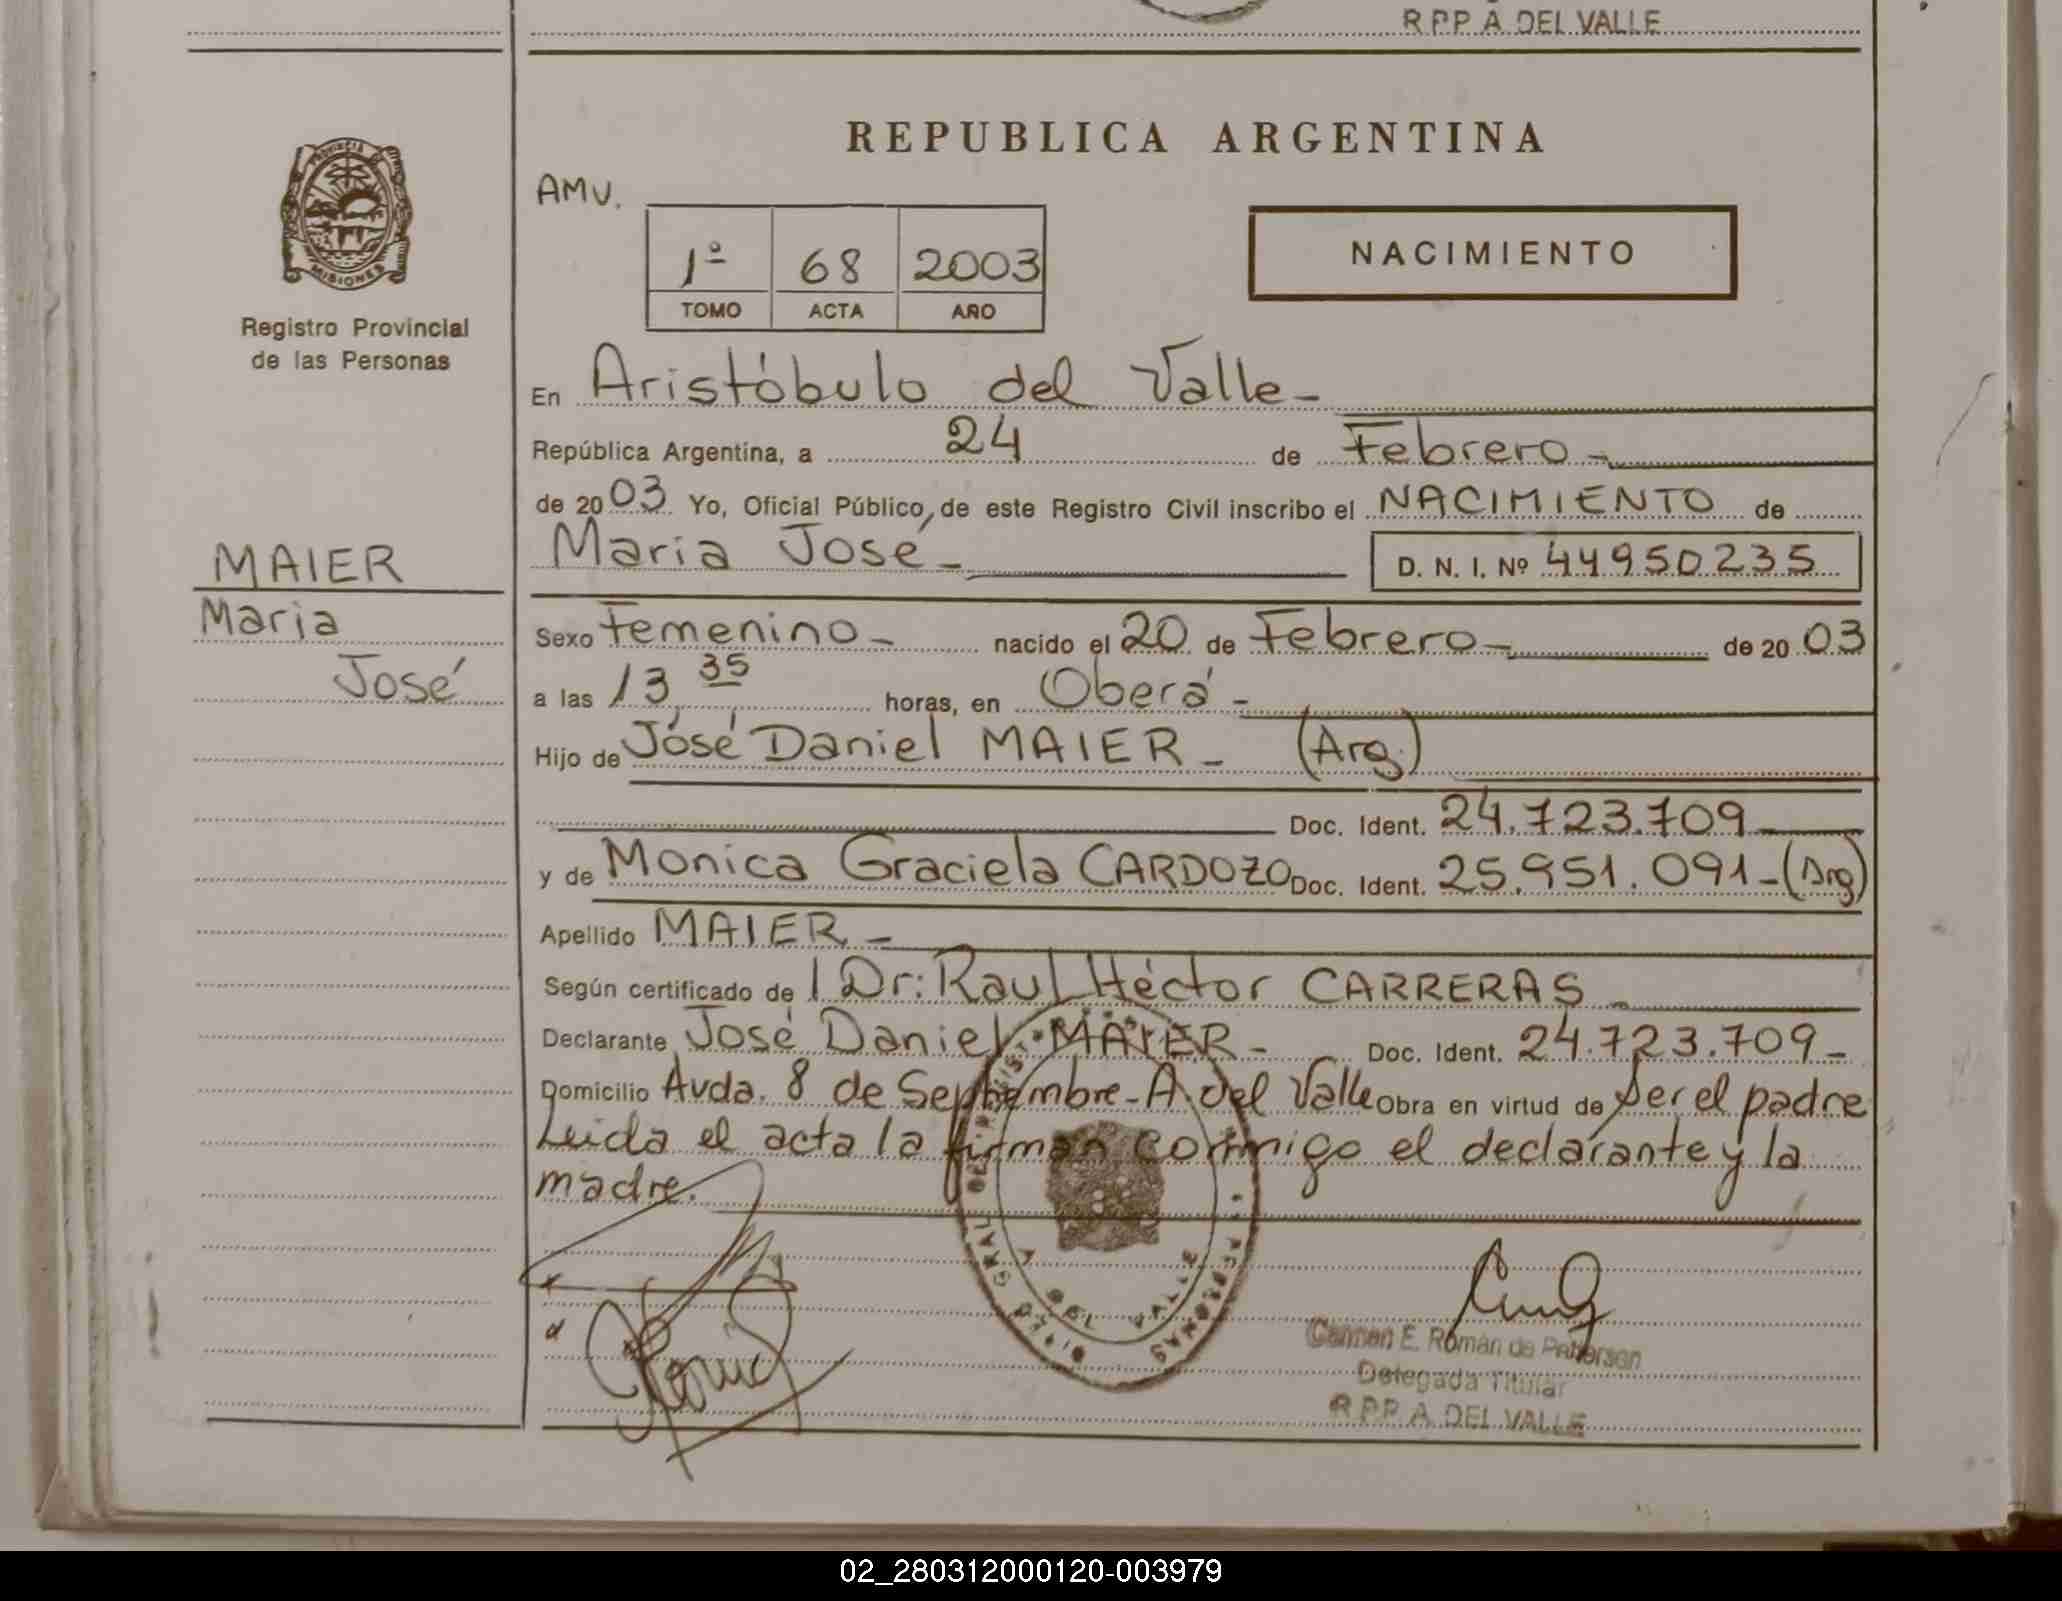 R P P A DEL VALLE
REPUBLICA ARGENTINA
PROVINCIA DE
MISIONES
Registro Provincial
de las Personas
AMV.
1º 68 2003
TOMO ACTA AÑO
NACIMIENTO
En Aristóbulo del Valle-
República Argentina, a 24 de Febrero-
de 2003 Yo, Oficial Público, de este Registro Civil inscribo el NACIMIENTO de
MAIER
Maria
José
Maria José- D. N. I. Nº 44950235
Sexo Femenino- nacido el 20 de Febrero- de 2003
a las 13 35 horas, en Oberá-
Hijo de José Daniel MAIER- (Arg.)
Doc. Ident. 24.723.709
y de Monica Graciela CARDOZO Doc. Ident. 25.951.091-(Arg)
Apellido MAIER-
Según certificado de l Dr: Raul Héctor CARRERAS-
Declarante José Daniel MAIER- Doc. Ident. 24.723.709-
Domicilio Avda. 8 de Septiembre-A. del Valle Obra en virtud de ser el padre
Leida el acta la firman conmigo el declarante y la
madre.
A DEL VALLE
Carmen E. Román de Petterson
Delegada Titular
R P P A DEL VALLE
02_280312000120-003979